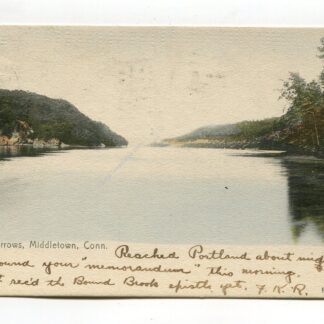 rrows, Middletown, Conn.
Reached Portland about nigh
ound your "memorandum" this morning.
t rec'd th Bound Brook epistle yet. F.K.R.